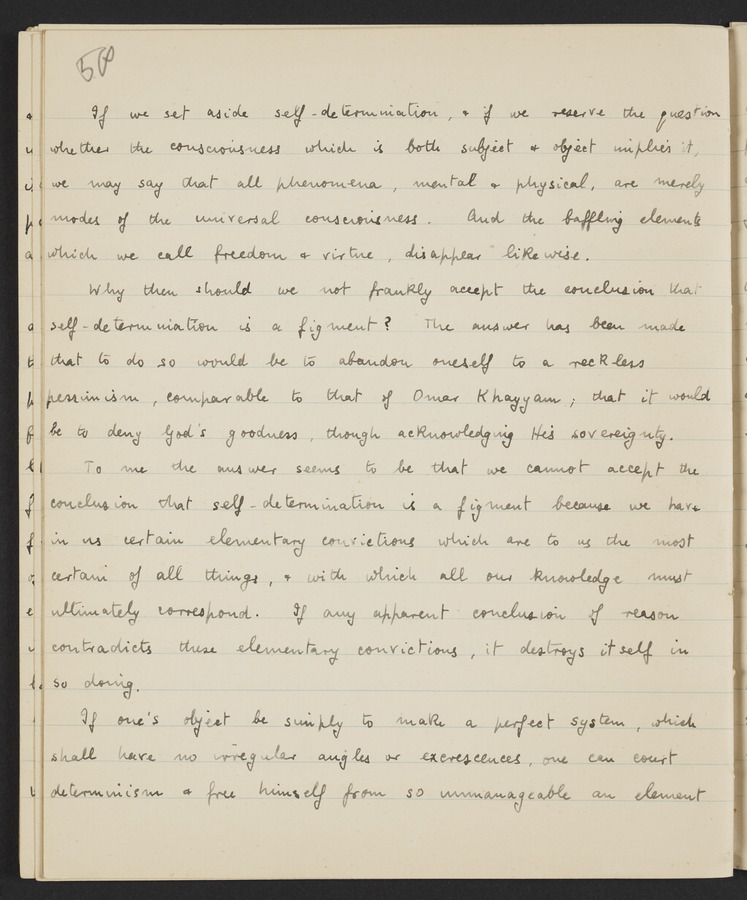 58
If we set aside self-determination, & if we reserve the question
whether the consciousness which is both subject & object implies it,
we may say that all phenomena, mental & physical, are merely
modes of the universal consciousness. And the baffling elements
which we call freedom & virtue, disappear likewise.
Why then should we not frankly accept the conclusion that
self-determination is a figment? The answer has been made
that to do so would be to abandon oneself to a reckless
pessimism, comparable to that of Omar Khayyam; that it would
be to deny God's goodness, though acknowledging His sovereignty.
To me the answer seems to be that we cannot accept the
conclusion that self-determination is a figment because we have
in us certain elementary convictions which are to us the most
certain of all things, & with which all our knowledge must
ultimately correspond. If any apparent conclusion of reason
contradicts these elementary convictions, it destroys itself in
so doing.
If one's object be simply to make a perfect system, which
shall have no irregular angles or excrescences, one can court
determinism & free himself from so unmanageable an element